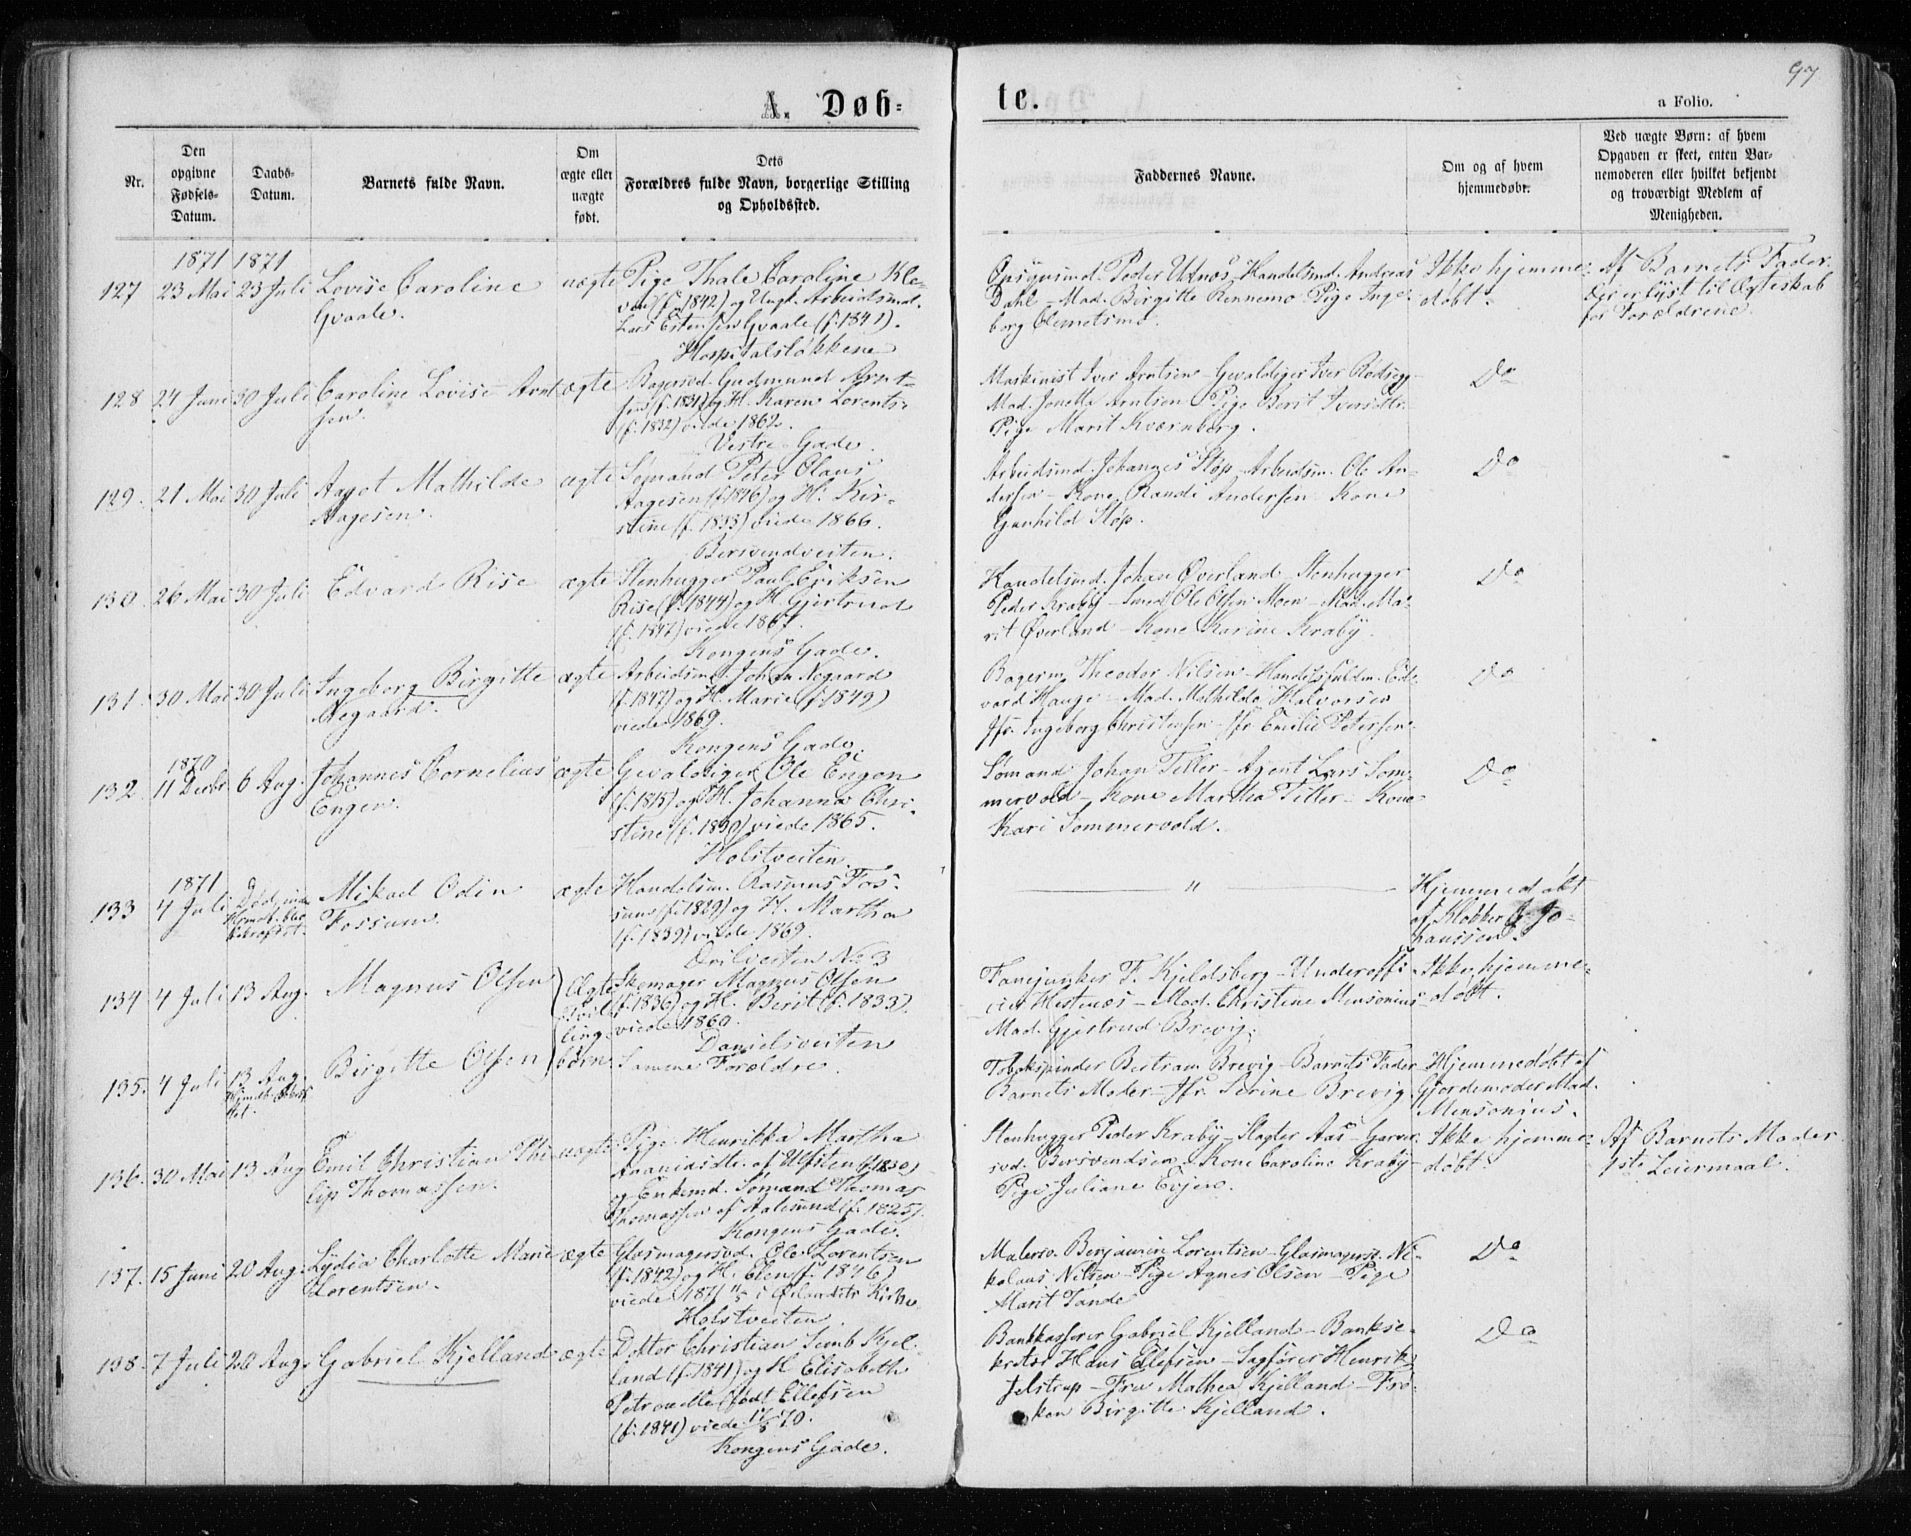 97
A. Døb-
te.
a Folio.
Nr.
Den opgivne Fødsels-Datum.
Daabs-Datum.
Barnets fulde Navn.
Om ægte eller uægte født.
Dets Forældres fulde Navn, borgerlige Stilling og Opholdssted.
Faddernes Navne.
Om og af hvem hjemmedøbt.
Ved uægte Børn: af hvem Opgaven er skeet, enten Barnemoderen eller hvilket bekjendt og troværdigt Medlem af Menigheden.
1871 1871
127 23 Mai 23 Juli Lovise Caroline uægte Pige Thale Caroline Kle-
Gvaale. (f. 1842) og Ungk. Arbeidsmd.
Lars Estensen Gvaale (f. 1841).
Hospitalsløkkene
Opsynsmd. Peder Utnæs - Handelsmd. Andreas
Dahl - Mad. Birgitte Rennemo - Pige Inge-
borg
Ikke hjemme-
døbt.
Af Barnets Fader.
Der er lyst til Ægteskab
for Forældrene.
128 24 Juni 30 Juli Caroline Lovise Arnt- ægte Bagersvd. Gudmund Arnt-
sen. sen (f. 1831) og H. Karen Lorents.
(f. 1832) viede 1862.
Vestre Gade.
Maskinist Iver Arntsen - Gevaldiger Iver Rødsegg
Mad. Jonetta Arntsen - Pige Berit Iversdtr.
Pige Marit Kværnberg.
Do
129. 21 Mai 30 Juli Aagot Mathilde ægte Sømand Peter Olaus
Aagesen. Aagesen (f. 1846) og H. Kir-
stine (f. 1833) viede 1866.
Bersvendveiten.
Arbeidsmd. Johannes Støp - Arbeidsm. Ole An-
dersen - Kone Randi Andersen - Kone
Gunhild Støp.
Do
130. 26 Mai 30 Juli Edvard Rise ægte Stenhugger Paul Eriksen
Rise (f. 1844) og H. Gjertrud
(f. 1842) viede 1867.
Kongens Gade.
Handelsmd. Johan Øverland - Stenhugger
Peder Kraby - Smed Ole Olsen Moen - Mad. Ma-
rit Øverland - Kone Karine Kraby.
Do
131. 30 Mai 30 Juli Ingeborg Birgitte ægte Arbeidsmd. Johan Negaard
Negaard. (f. 1847) og H. Marie (f. 1849)
viede 1869.
Kongens Gade.
Bagerm. Theodor Nilsen - Handelsfuldm. Ed-
vard Hauge - Mad. Mathilde Halvorsen
Jfr. Ingeborg Christensen - Jfr. Emilie Petersen.
Do
1870
132. 11 Decbr 6 Aug. Johannes Cornelius ægte Gevaldiger Ole Engen
Engen. (f. 1815) og H. Johanna Chri-
stine (f. 1830) viede 1865.
Holstveiten.
Sømand Johan Tiller - Agent Lars Som-
mervold - Kone Martha Tiller - Kone
Kari Sommervold.
Do
1871
133 4 Juli Død Mikael Odin ægte Handelsm. Rasmus Fos-
Fossum. sum (f. 1829) og H. Martha
(f. 1839) viede 1869.
No 3
"
Hjemmedøbt
af Klokker Jo-
hanssen.
134 4 Juli 13 Aug. Magnus Olsen Ægte Skomager Magnus Olsen
tvil- (f. 1836) og H. Berit (f. 1833)
ling- viede 1860.
Danielsveiten
Fanejunker F. Kjeldsberg - Underoffi-
cier Hestnæs - Mad. Christine Mensonius
Mad. Gjertrud Brevig.
Ikke hjemme-
døbt.
135. 4 Juli 13 Aug. Birgitte Olsen børn. Samme Forældre.
Tobakspinder Bertram Brevig - Barnets Fader
Barnets Moder - Jfr. Serine Brevig
Hjemmedøbt af
Gjordemoder Mad.
Mensonius.
136. 30 Mai 13 Aug Emil Christian Phi- uægte Pige Henrikka Martha
lip Thomassen. af Ulfsten (f. 1830)
og Enkemd. Sømand Thomas
Thomassen af Aalesund (f. 1825).
Kongens Gade.
Stenhugger Peder Kraby - Slagter Aas - Garver-
svd. Bersvendsen - Kone Caroline Kraby
Pige Juliane Evjen.
Ikke hjemme-
døbt.
Af Barnets Moder
1ste Leiermaal.
137. 15 Juni 20 Aug. Lydia Charlotte Marie ægte Glasmagersvd. Ole Lorentsen
Lorentsen. (f. 1842) og H. Elen (f. 1846)
viede 1871 i Ørlandets Kirke
Holstveiten.
Malersv. Benjamin Lorentsen - Glasmagersv. Ni-
kolaus Nilsen - Pige Agnes Olsen - Pige
Marit Sande
Do
138. 7 Juli 20 Aug. Gabriel Kjelland ægte Doktor Christian Semb Kjel-
land (f. 1841) og H. Elisabeth
Petronelle (født Ellefsen
(f. 1841) viede 70.
Kongens Gade.
Bankkasserer Gabriel Kjelland - Bankse-
kretær Hans Ellefsen - Sagfører Henrik
Jelstrup - Fru Mathea Kjelland - Frø-
ken Birgitte Kjelland.
Do